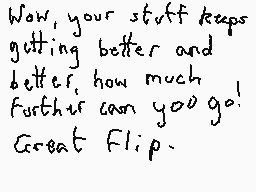 Wow, your stuff keeps
getting better and
better, how much
further can yoo go!
Great Flip.